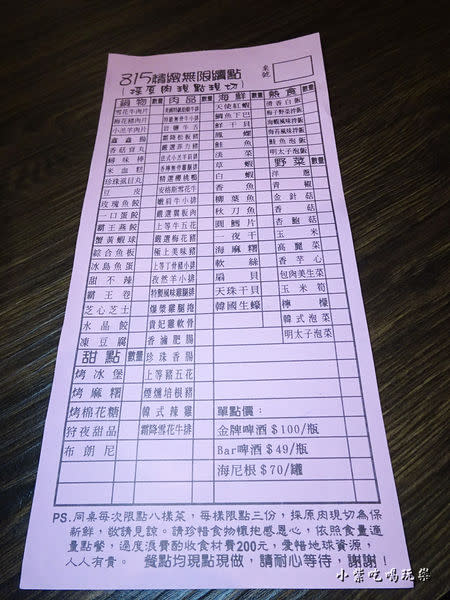 815精緻無限續點
(採原肉現點現切)
桌號
鍋物 數量 肉品 數量 海鮮 數量 熱食 數量
雪花牛肉片
梅花豬肉片
小羔羊肉片
鑫鑫腸
香菇貢丸
蟳味棒
米血糕
珍珠虱目丸
豆皮
玫瑰魚餃
一口蛋餃
霸王燕餃
蟹黃蝦球
綜合魚板
冰島魚蛋
甜不辣
霸王卷
芝心芝士
水晶餃
凍豆腐
甜點 數量
烤冰堡
烤麻糬
烤棉花糖
狩夜甜品
布朗尼
霜降松板豬
嚴選菲力豬
法式小羔羊排
精選櫻桃鴨
安格斯雪花牛
嫩肩牛小排
嚴選翼板肉
上等牛五花
嚴選梅花豬
極上美味豬
上等丁骨豬小排
孜然羊小排
特製風味雞腿排
爆漿雞腿捲
貴妃雞軟骨
香滷肥腸
珍珠香腸
上等豬五花
煙燻培根豬
韓式辣雞
霜降雪花牛排
天使紅蝦
鯛魚下巴
鮮干貝
鳳螺
魷魚
淡菜
草蝦
白蝦
香魚
柳葉魚
秋刀魚
圓鱈片
一夜干
海麻糬
軟絲
扇貝
天珠干貝
韓國生蠔
清香白飯
梅子野菜拌飯
海蝦風味拌飯
鮭魚泡飯
明太子泡飯
野菜 數量
洋蔥
青椒
金針菇
香菇
杏鮑菇
玉米
高麗菜
香芋心
包肉美生菜
玉米筍
檸檬
韓式泡菜
明太子泡菜
單點價:
金牌啤酒$100/瓶
Bar啤酒$49/瓶
海尼根$70/罐
PS.同桌每次限點八樣菜,每樣限點三份,採原肉現切為保
新鮮,敬請見諒。請珍惜食物懷抱感恩心,依照食量適
量點餐,過度浪費酌收食材費200元,愛惜地球資源,
人人有責。 餐點均現點現做,請耐心等待,謝謝!
小紫吃喝玩樂